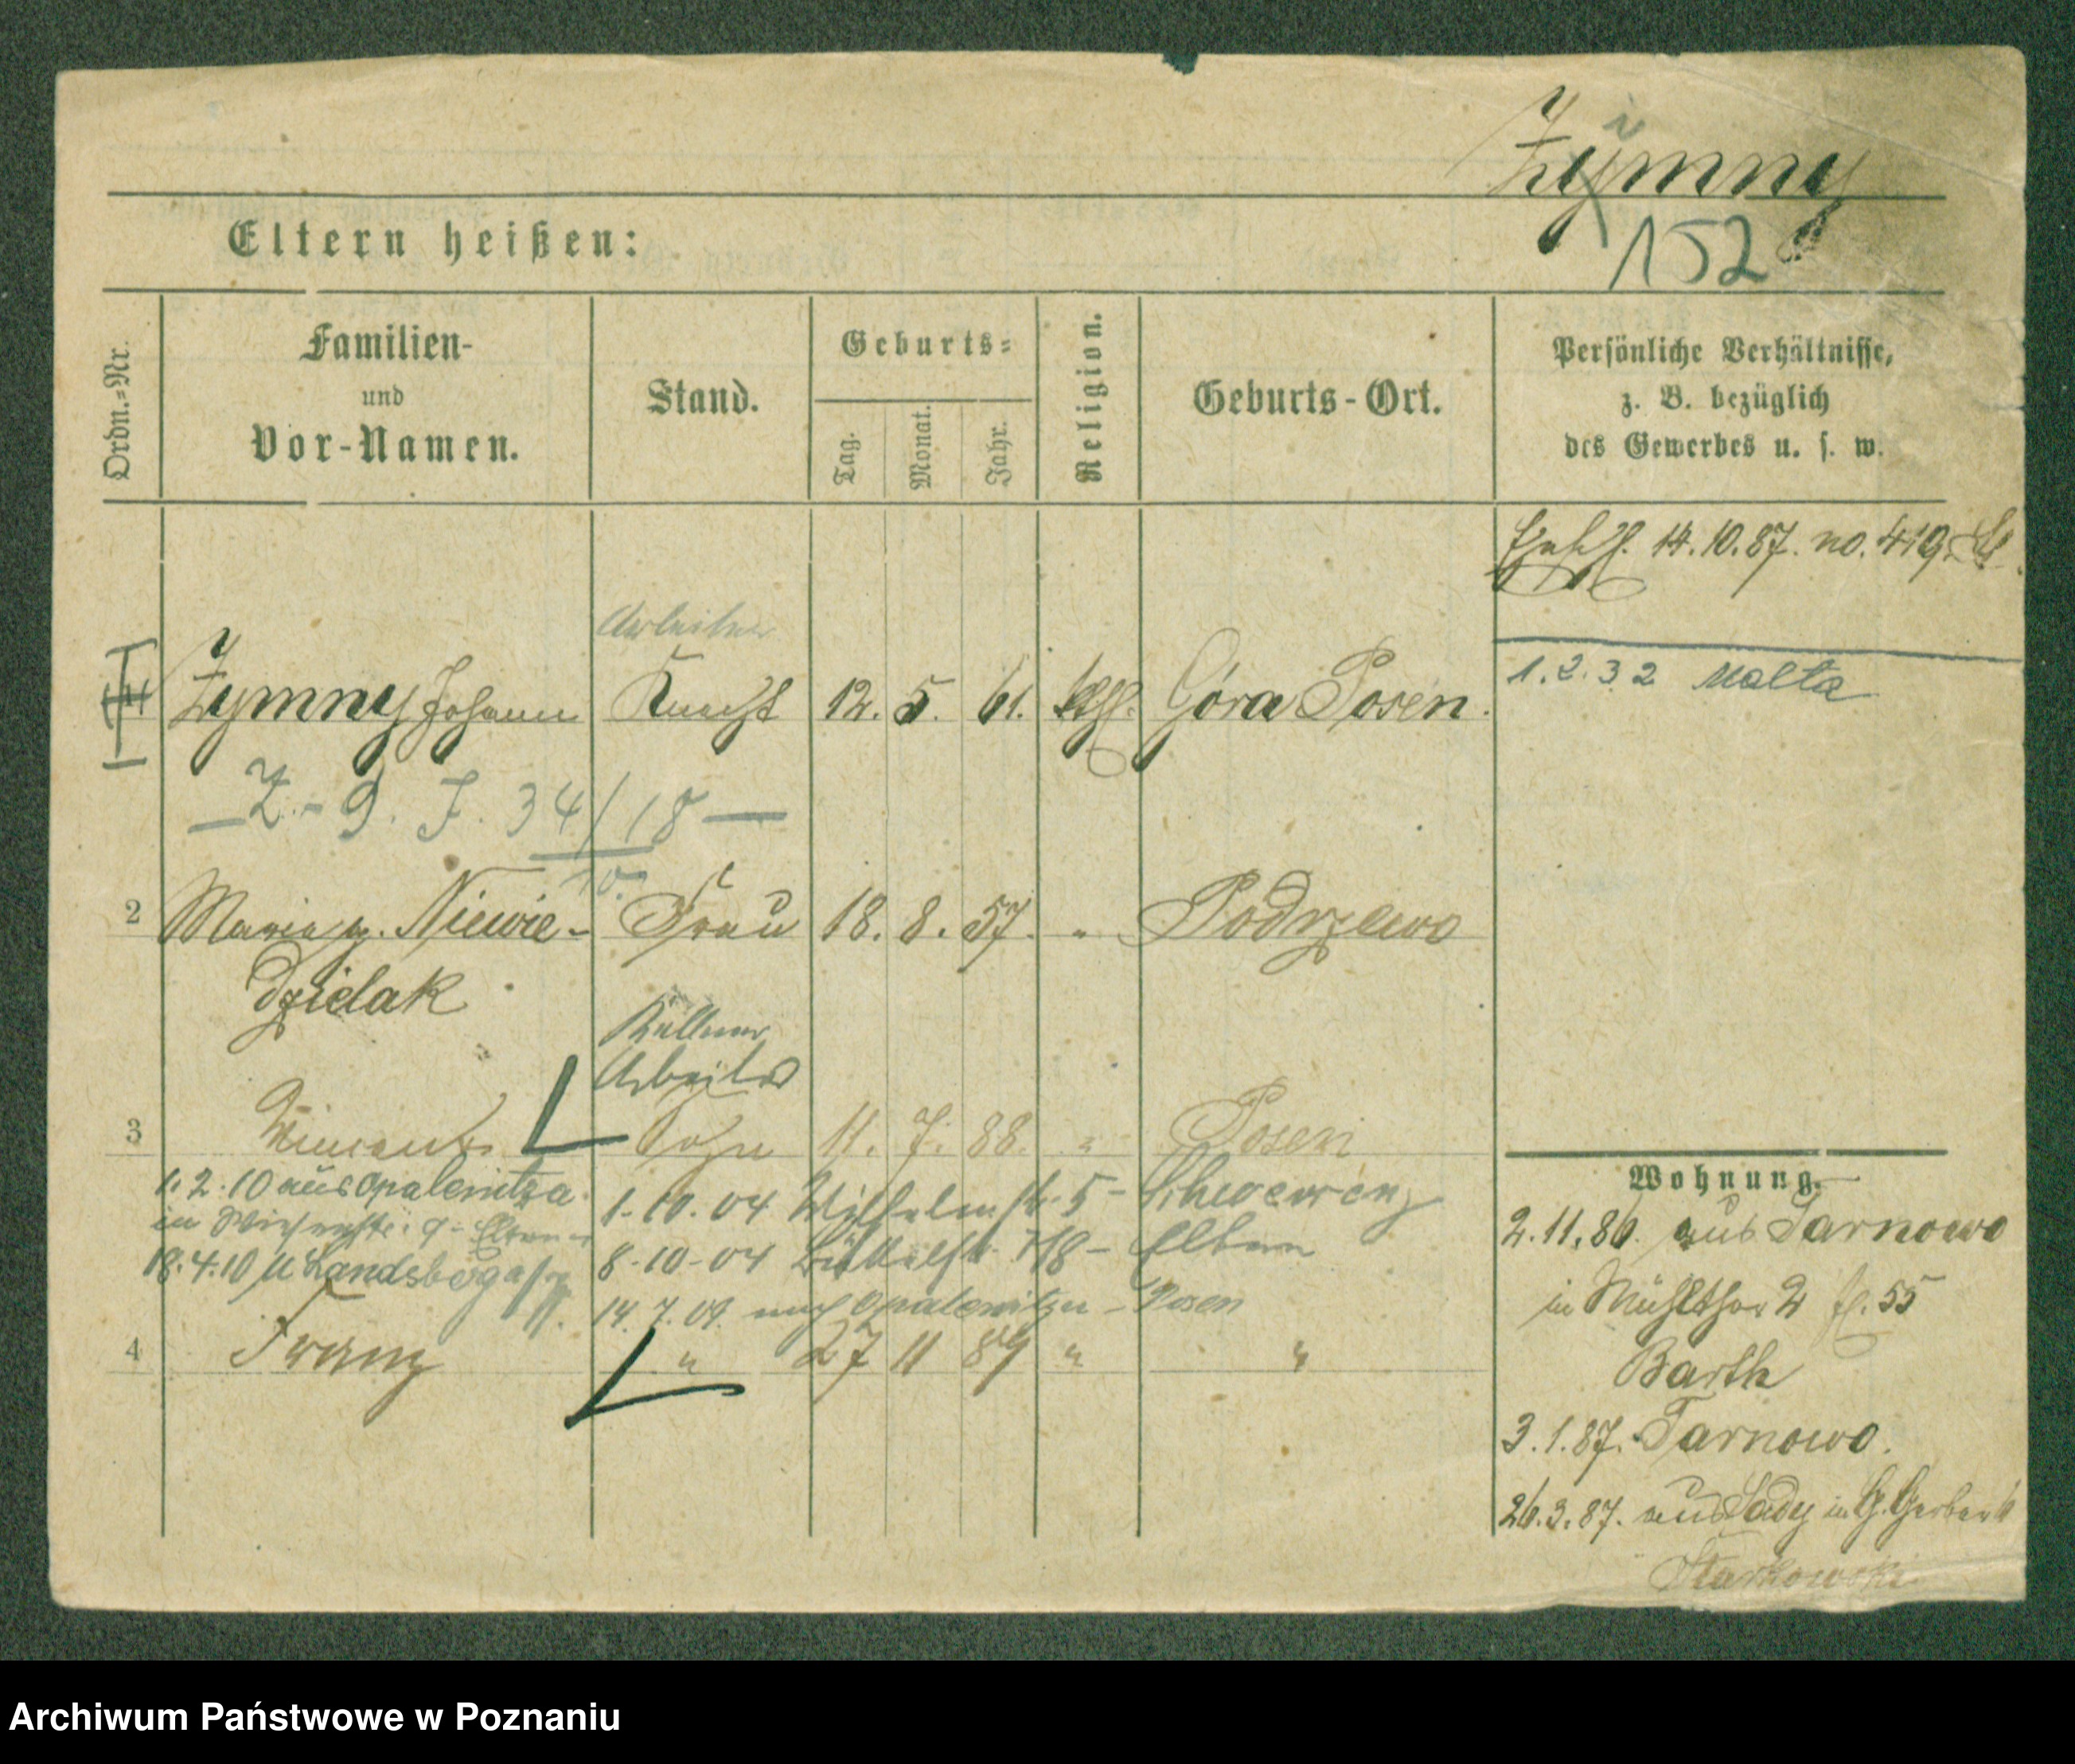 Zymny
152
Eltern heißen:
Ordn.-Nr.
Familien-
und
Vor-Namen.
Stand.
Geburts-
Tag.
Monat.
Jahr.
Religion.
Geburts-Ort.
Persönliche Verhältnisse,
z. B. bezüglich
des Gewerbes u. s. w.
14.10.87. no. 419
1.2.32 Malta
Arbeiter
Zymny Johann Knecht 12. 5. 61. kath. Góra Posen.
Z.-9. J. 34/18
2 Maria g. Niewie- Frau 18. 8. 57. " Podrzewo
dzielak
Kellner
Arbeiter
3 Vincent Sohn 11. 7. 88. " Posen
1.2.10 aus Opalenitza
18.4.10 n Landsberg a/
1.10.04 Wilhelmstr. 5 - Schwersenz
8.10-04 18 - Eltern
14.7.09. nach Opalenitza - Posen
4 Franz " 27 11 89 " "
Wohnung.
2.11.86. aus Tarnowo
in Mühlthor 2 55
Barth
3.1.87. Tarnowo.
26.3.87. aus Sady in G. Gerber 6
Starkowski
Archiwum Państwowe w Poznaniu